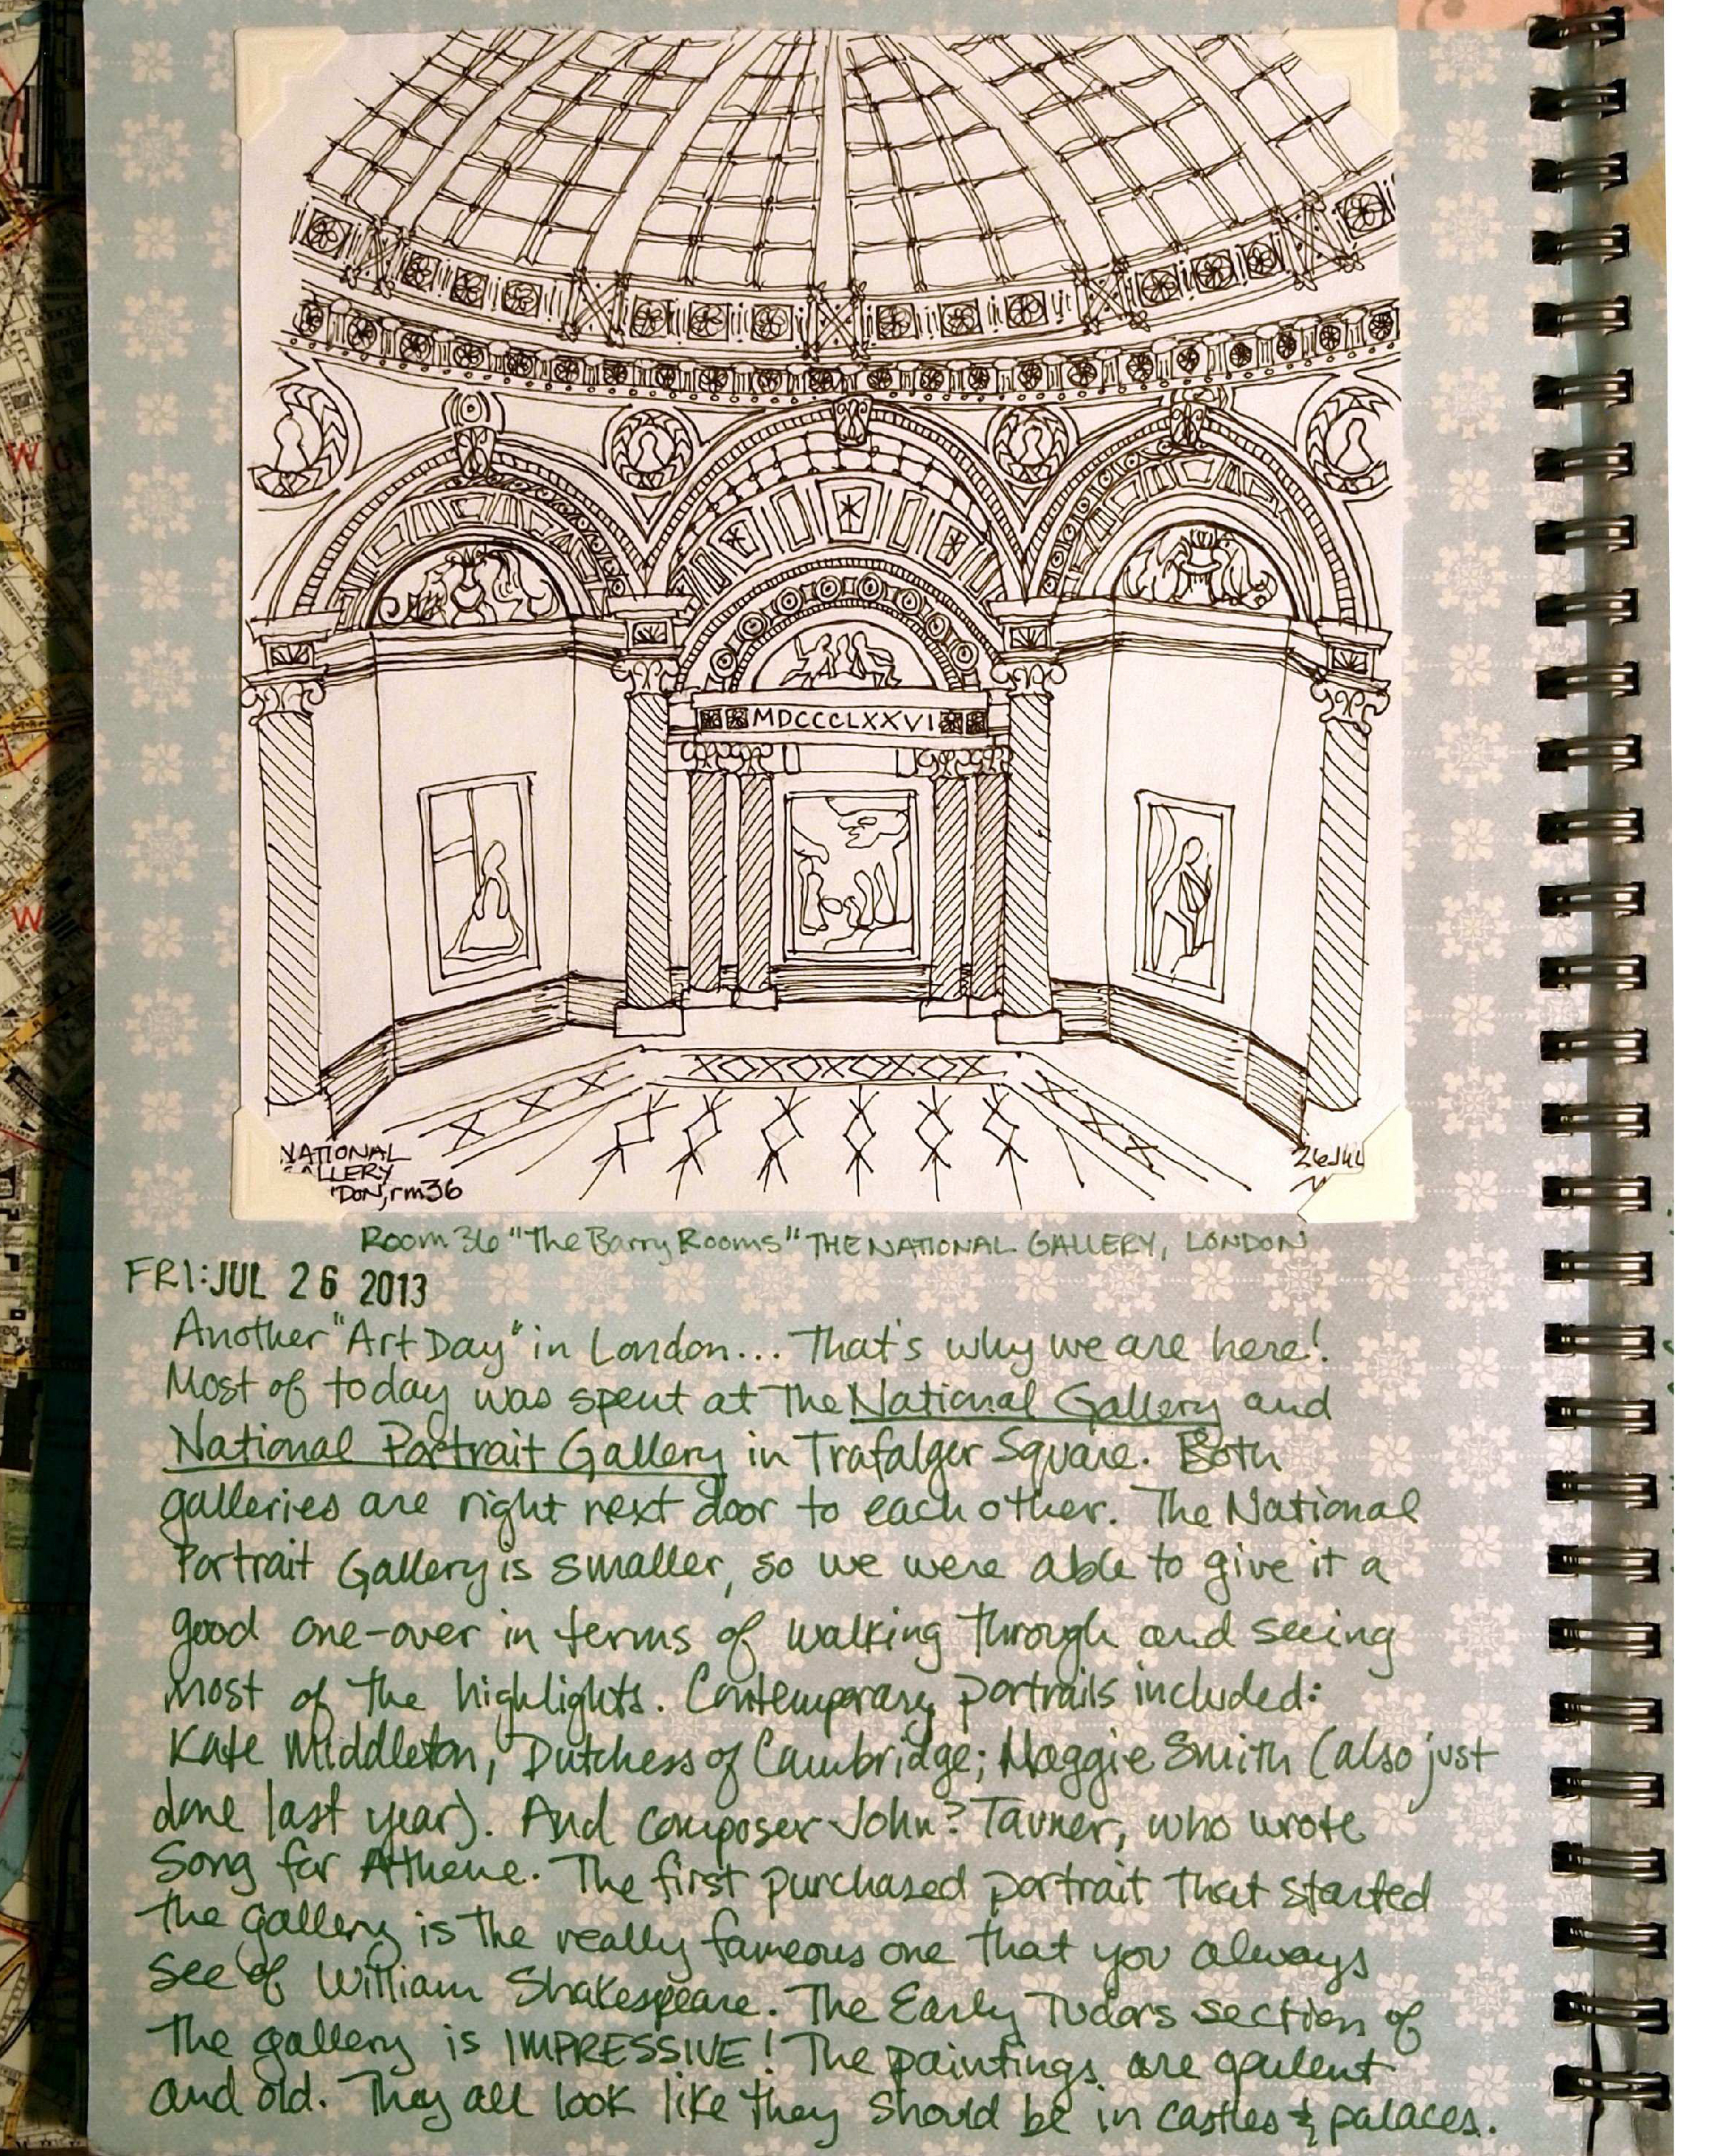 MDCCCLXXVI
NATIONAL
GALLERY
DON, rm36
26 JUL
Room 36 "The Barry Rooms" THE NATIONAL GALLERY, LONDON
FRI: JUL 26 2013
Another "Art Day" in London... That's why we are here!
Most of today was spent at The National Gallery and
National Portrait Gallery in Trafalger Square. Both
galleries are right next door to each other. The National
Portrait Gallery is smaller, so we were able to give it a
good one-over in terms of walking through and seeing
most of the highlights. Contemporary portraits included:
Kate Middleton, Dutchess of Cambridge; Maggie Smith (also just
done last year). And composer John? Tavner, who wrote
Song for Athene. The first purchased portrait that started
the gallery is the really fameous one that you always
see of William Shakespeare. The Early Tudors section of
the gallery is IMPRESSIVE! The paintings are opulent
and old. They all look like they should be in castles & palaces.